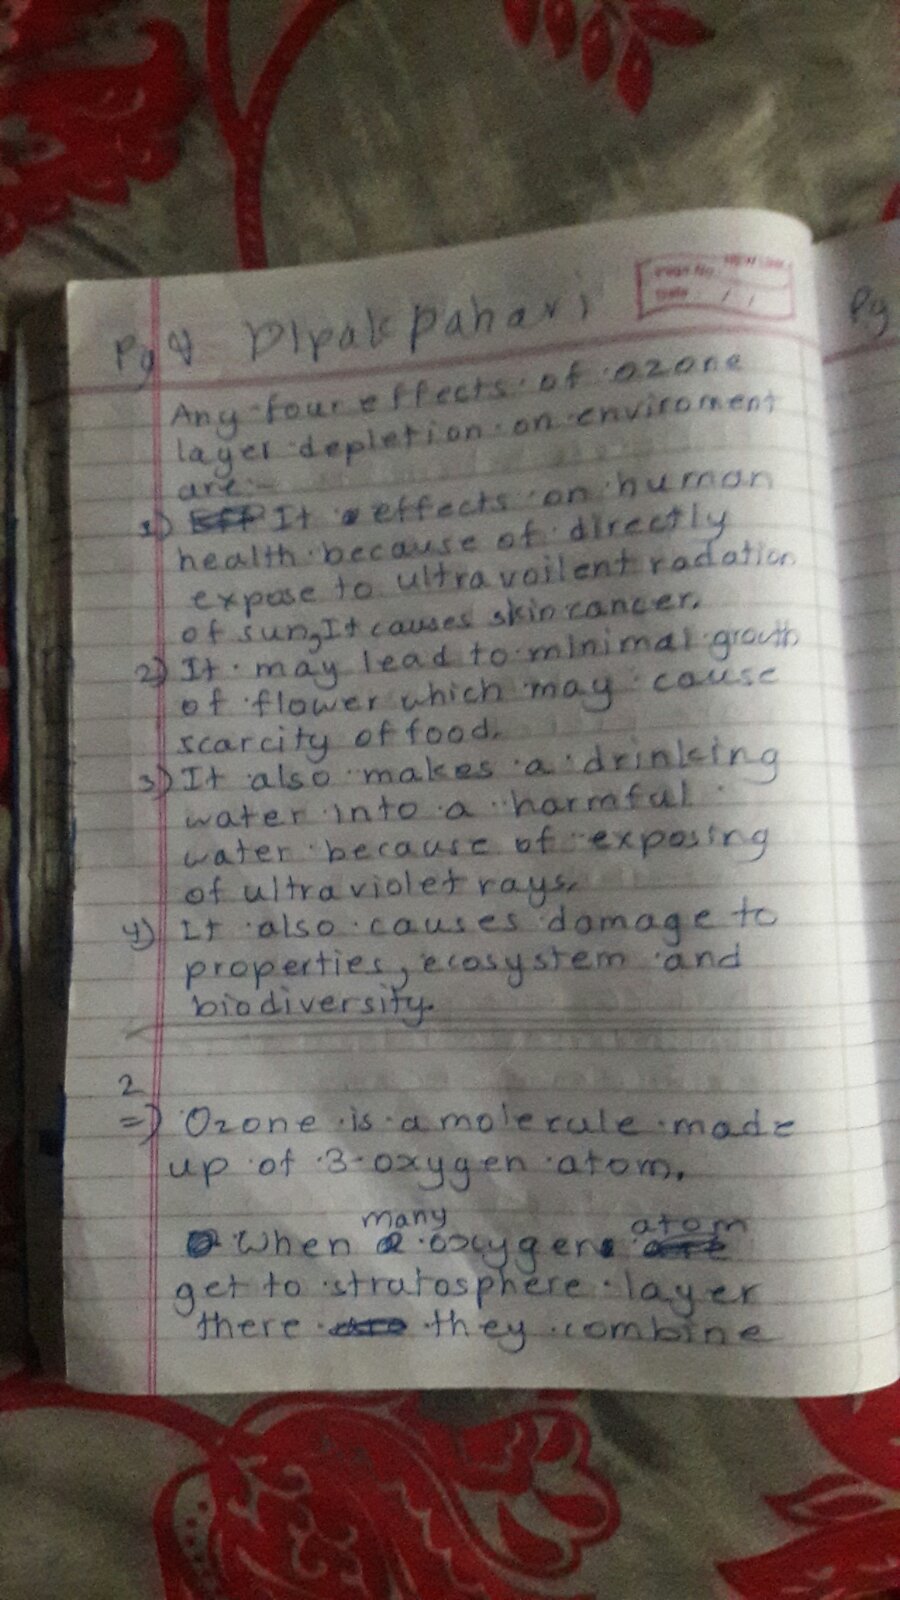 Page No. NEW LINK
Date / /
Pg
Dipak Pahari
Pg
Any four effects of ozone
layer depletion on enviroment
are:-
1) It effects on human
health because of directly
expose to ultra voilent radation
of sun, It causes skin cancer.
2) It may lead to minimal growth
of flower which may cause
scarcity of food.
3) It also makes a drinking
water into a harmful
water because of exposing
of ultraviolet rays.
4) It also causes damage to
properties, ecosystem and
biodiversity.
2
=) Ozone is a molecule made
up of 3 oxygen atom.
When many oxygen atom
get to stratosphere layer
there they combine